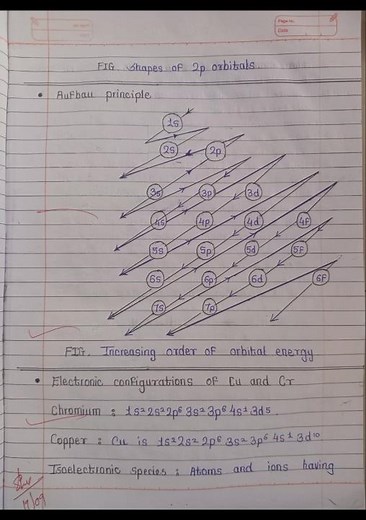 Page no.
Date
FIG. Shapes of 2p orbitals.
• Aufbau principle
1s
2s 2p
3s 3p 3d
4s 4p 4d 4f
5s 5p 5d 5f
6s 6p 6d 6f
7s 7p
FIG. Increasing order of orbital energy
• Electronic configurations of Cu and Cr
Chromium : 1s² 2s² 2p⁶ 3s² 3p⁶ 4s¹ 3d⁵
Copper : Cu is 1s² 2s² 2p⁶ 3s² 3p⁶ 4s¹ 3d¹⁰
Isoelectronic species : Atoms and ions having